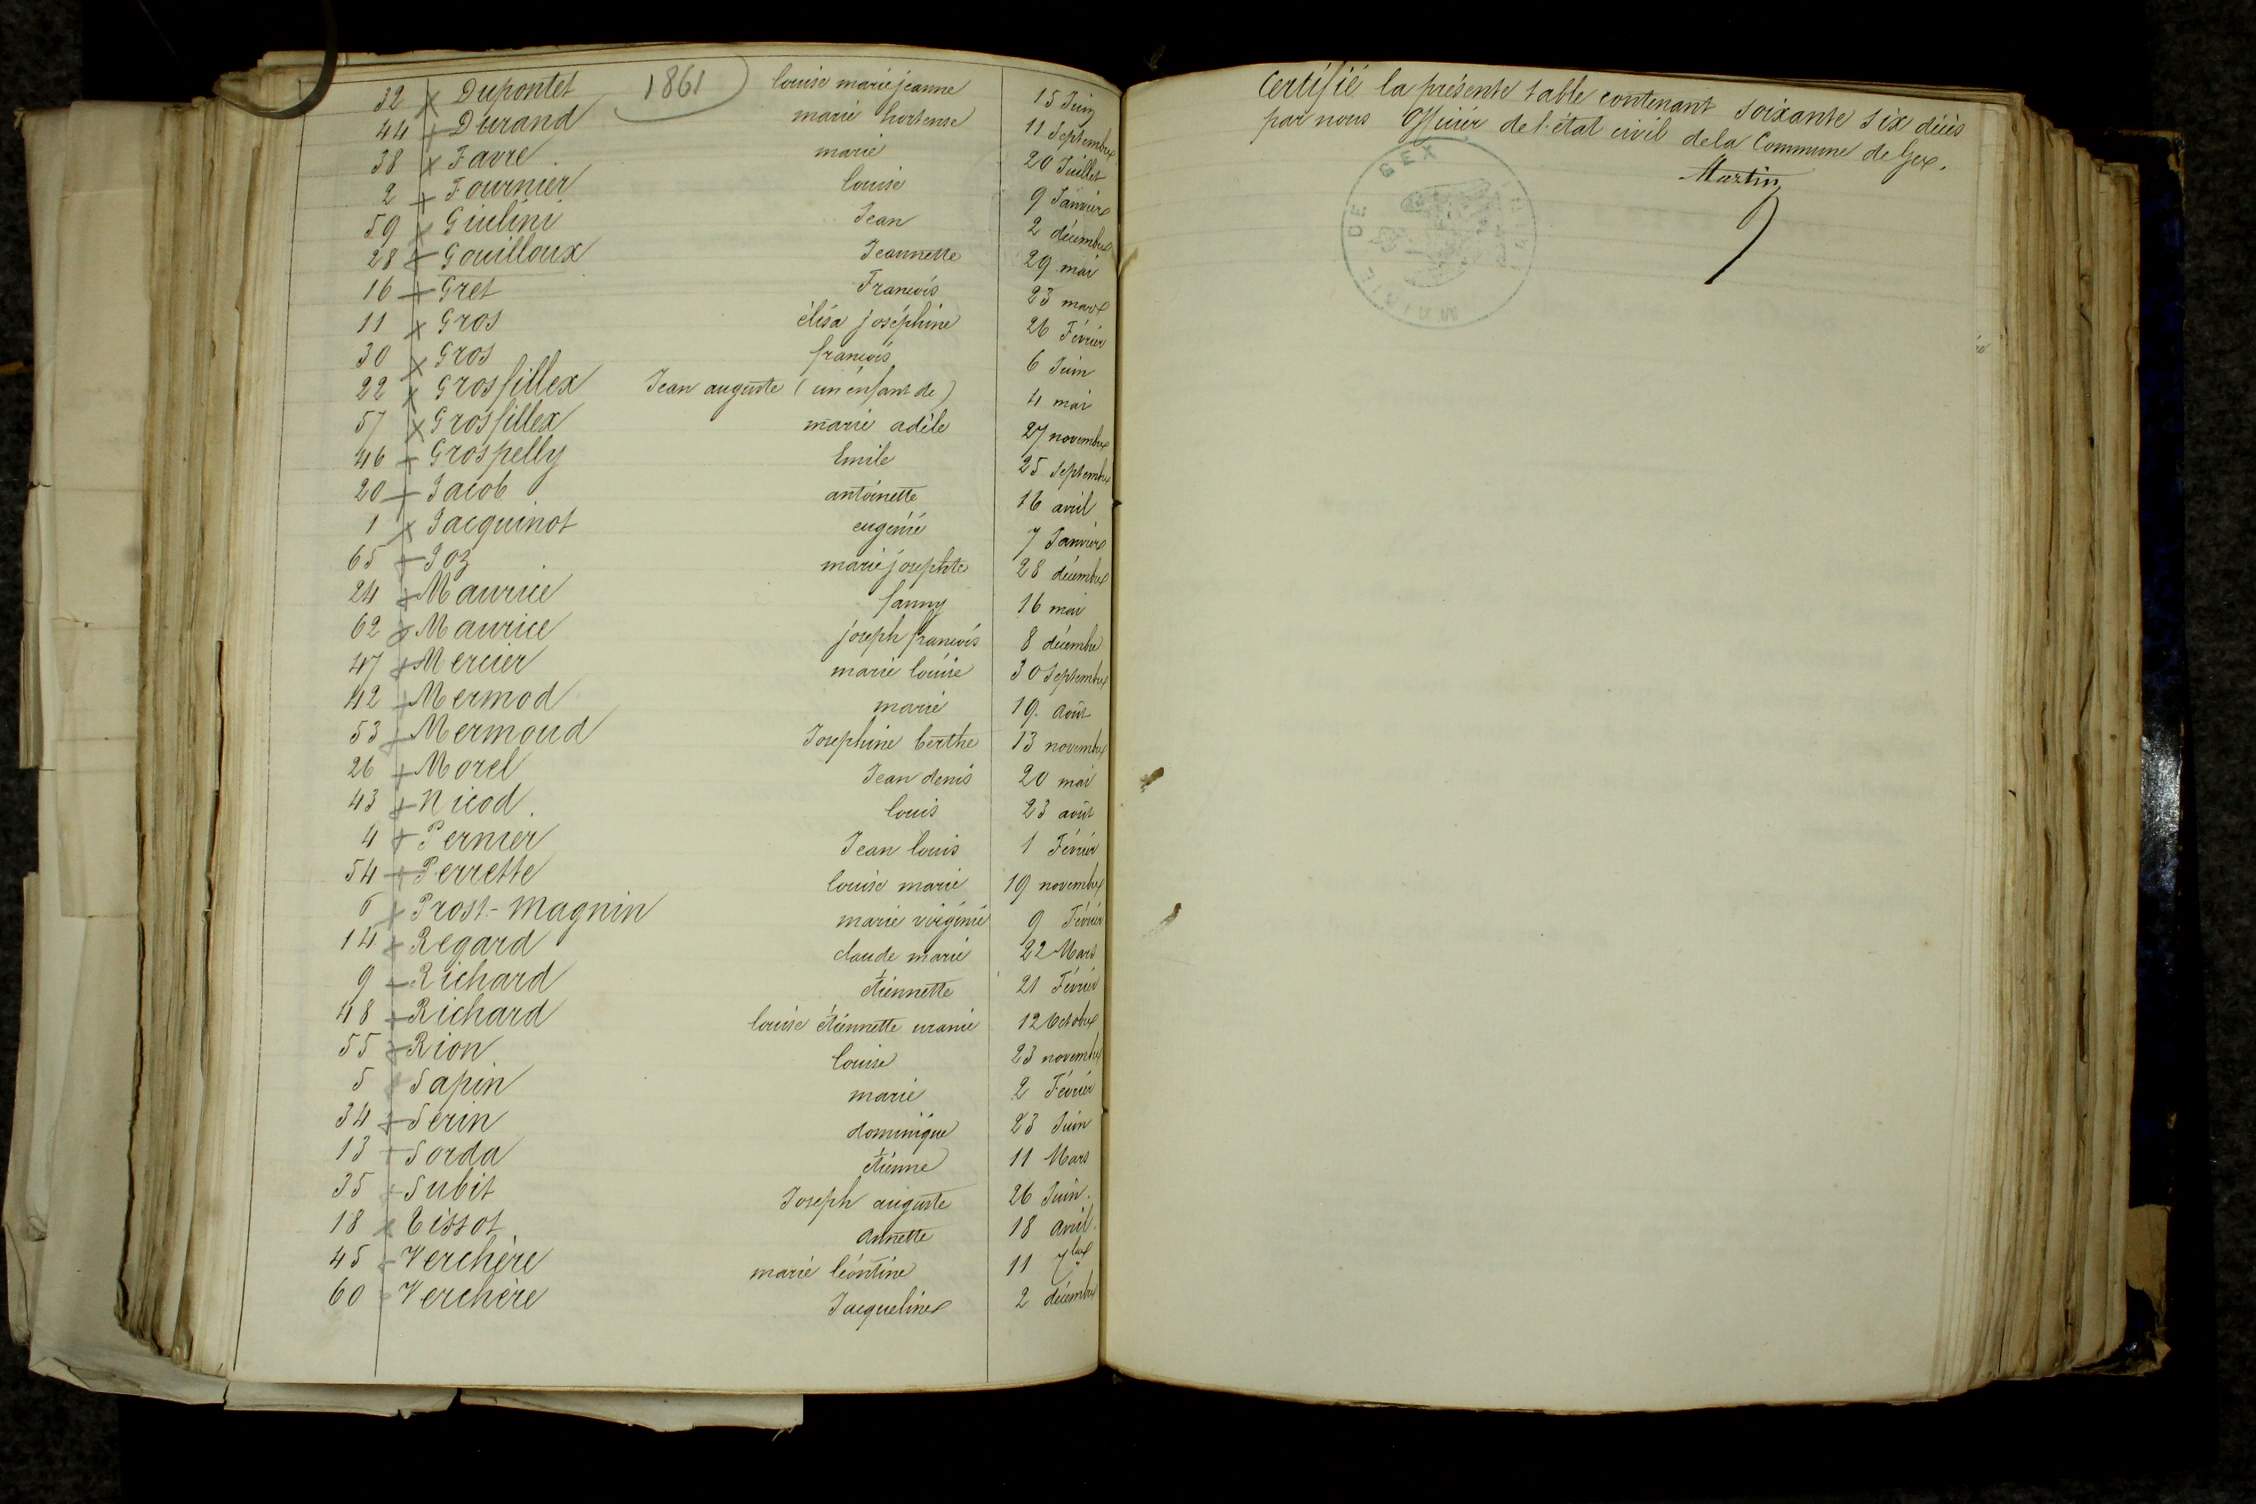 1861
32 Dupontet louise marie jeanne 15 Juin
44 Durand marie hortense 11 Septembre
38 Favre marie 20 Juillet
2 Fournier louise 9 Janvier
59 Giulini Jean 2 décembre
28 Gouilloux Jeannette 29 mai
16 Gret François 23 mars
11 Gros élisa joséphine 26 Février
30 Gros françois 6 Juin
22 Grosfillex Jean auguste (un énfant de) 4 mai
57 Grosfillex marie adèle 27 novembre
46 Grospelly Emile 25 Septembre
20 Jacob antoinette 16 avril
1 Jacquinot eugénie 7 Janvier
65 Joz marie josephte 28 décembre
24 Maurice fanny 16 mai
62 Maurice joseph françois 8 décembre
47 Mercier marie louise 30 Septembre
42 Mermod marie 19. Août
53 Mermoud Josephine berthe 13 novembre
26 Morel Jean denis 20 mai
43 Nicod louis 23 août
4 Pernier Jean louis 1 Février
54 Perrette louise marie 19 novembre
6 Prost-Magnin marie virginie 9 Février
14 Regard claude marie 22 Mars
9 Richard étiennette 21 Février
48 Richard louise étiennette uranie 12 Octobre
55 Rion louise 23 novembre
5 Sapin marie 2 Février
34 Serin dominique 23 Juin
13 Sorda étienne 11 Mars
35 Subit Joseph auguste 26 Juin.
18 Tissot Annette 18 avril.
45 Verchère marie léontine 11 7bre
60 Verchère Jacqueline 2 décembre
Certifié la présente table contenant Soixante Six décès
par nous Officier de l'état civil de la Commune de Gex.
Martin
MAIRIE DE GEX